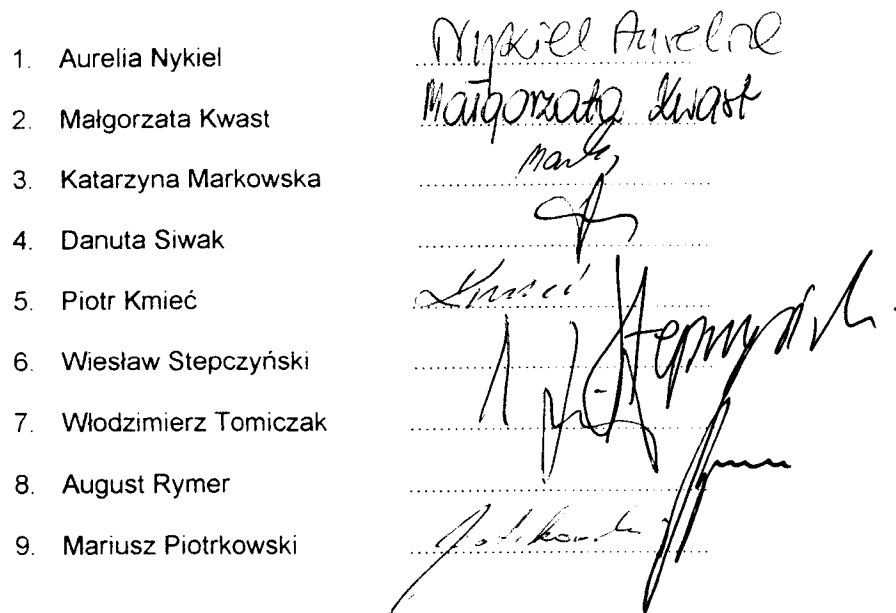 1. Aurelia Nykiel Nykiel Aurelia
2. Małgorzata Kwast Małgorzata Kwast
3. Katarzyna Markowska
4. Danuta Siwak
5. Piotr Kmieć Kmieć
6. Wiesław Stepczyński
7. Włodzimierz Tomiczak
8. August Rymer
9. Mariusz Piotrkowski